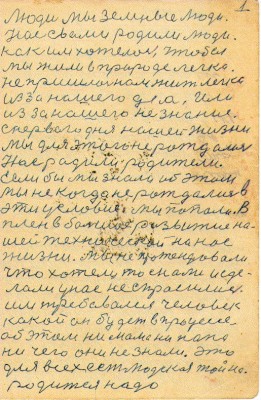 1.
Люди мы земные люди.
Нас свами родили люди.
каким хотелось чтобы
мы жили в природе легко.
не пришлось нам жит легко
из за нашего дела, или
из за нашего не знание.
с первого дня нашей жизни
мы для этого не рождалися
Нас радили родители.
если бы мы знали об этом
мы некогда не рождалися в
эти условия. мы попали в
плен в развитие на
шей технической на нас
жизни. мы не
что хотели то с нами и сде
лали у нас не спросилися.
им требовался человек
какой он будет в процессе
об этом ни мама ни папа
ни чего они не знали. Это
для всех ест людская тайна.
родится надо